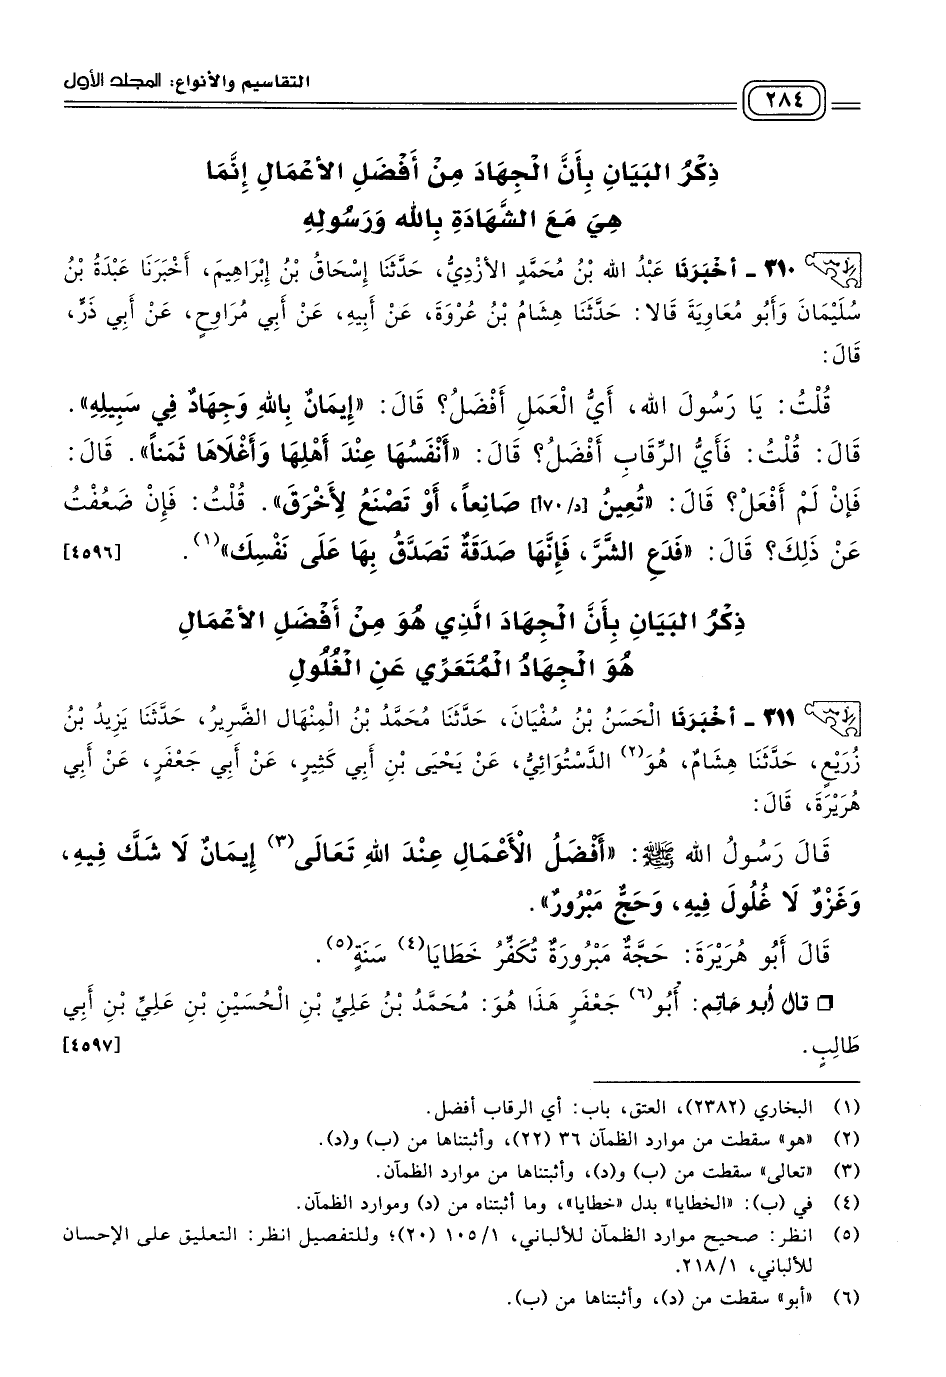 التقاسيم والأنواع: المجلد الأول
٢٨٤
ذِكْرُ البَيَانِ بِأَنَّ الْجِهَادَ مِنْ أَفْضَلِ الأعْمَالِ إنَّمَا
هِيَ مَعَ الشَّهَادَةِ بِالله وَرَسُولِهِ
٣١٠ ـ أخْبَرَنَا عَبْدُ الله بْنُ مُحَمَّدٍ الأَزْدِيُّ، حَدَّثَنَا إسْحَاقُ بْنُ إبْرَاهِيمَ، أَخْبَرَنَا عَبْدَةُ بْنُ
سُلَيْمَانَ وَأَبُو مُعَاوِيَةَ قَالا: حَدَّثَنَا هِشَامُ بْنُ عُرْوَةَ، عَنْ أَبِيهِ، عَنْ أَبِي مُرَاوِحٍ، عَنْ أَبِي ذَرٍّ،
قَالَ:
قُلْتُ: يَا رَسُولَ الله، أَيُّ الْعَمَلِ أَفْضَلُ؟ قَالَ: «إِيمَانٌ بِاللهِ وَجِهَادٌ فِي سَبِيلِهِ».
قَالَ: قُلْتُ: فَأَيُّ الرِّقَابِ أَفْضَلُ؟ قَالَ: «أَنْفَسُهَا عِنْدَ أَهْلِهَا وَأَغْلَاهَا ثَمَناً». قَالَ:
فَإنْ لَمْ أَفْعَلْ؟ قَالَ: «تُعِينُ [د/١٧٠] صَانِعاً، أَوْ تَصْنَعُ لِأَخْرَقَ». قُلْتُ: فَإِنْ ضَعُفْتُ
عَنْ ذَلِكَ؟ قَالَ: «فَدَعِ الشَّرَّ، فَإِنَّهَا صَدَقَةٌ تَصَدَّقُ بِهَا عَلَى نَفْسِكَ»(١). [٤٥٩٦]
ذِكْرُ البَيَانِ بِأَنَّ الْجِهَادَ الَّذِي هُوَ مِنْ أَفْضَلِ الأعْمَالِ
هُوَ الْجِهَادُ الْمُتَعَرِّي عَنِ الْغُلُولِ
٣١١ ـ أخْبَرَنَا الْحَسَنُ بْنُ سُفْيَانَ، حَدَّثَنَا مُحَمَّدُ بْنُ الْمِنْهَالِ الضَّرِيرُ، حَدَّثَنَا يَزِيدُ بْنُ
زُرَيْعٍ، حَدَّثَنَا هِشَامٌ، هُوَ(٢) الدَّسْتُوَائِيُّ، عَنْ يَحْيَى بْنِ أَبِي كَثِيرٍ، عَنْ أَبِي جَعْفَرٍ، عَنْ أَبِي
هُرَيْرَةَ، قَالَ:
قَالَ رَسُولُ الله ﷺ: «أَفْضَلُ الْأَعْمَالِ عِنْدَ اللهِ تَعَالَى(٣) إِيمَانٌ لَا شَكَّ فِيهِ،
وَغَزْوٌ لَا غُلُولَ فِيهِ، وَحَجٌّ مَبْرُورٌ».
قَالَ أَبُو هُرَيْرَةَ: حَجَّةٌ مَبْرُورَةٌ تُكَفِّرُ خَطَايَا(٤) سَنَةٍ(٥).
❒ قال أبو حاتِم: أَبُو(٦) جَعْفَرٍ هَذَا هُوَ: مُحَمَّدُ بْنُ عَلِيِّ بْنِ الْحُسَيْنِ بْنِ عَلِيِّ بْنِ أَبِي
طَالِبٍ. [٤٥٩٧]
(١) البخاري (٢٣٨٢)، العتق، باب: أي الرقاب أفضل.
(٢) «هو» سقطت من موارد الظمآن ٣٦ (٢٢)، وأثبتناها من (ب) و(د).
(٣) «تعالى» سقطت من (ب) و(د)، وأثبتناها من موارد الظمآن.
(٤) في (ب): «الخطايا» بدل «خطايا»، وما أثبتناه من (د) وموارد الظمآن.
(٥) انظر: صحيح موارد الظمآن للألباني، ١٠٥/١ (٢٠)؛ وللتفصيل انظر: التعليق على الإحسان
للألباني، ٢١٨/١.
(٦) «أبو» سقطت من (د)، وأثبتناها من (ب).